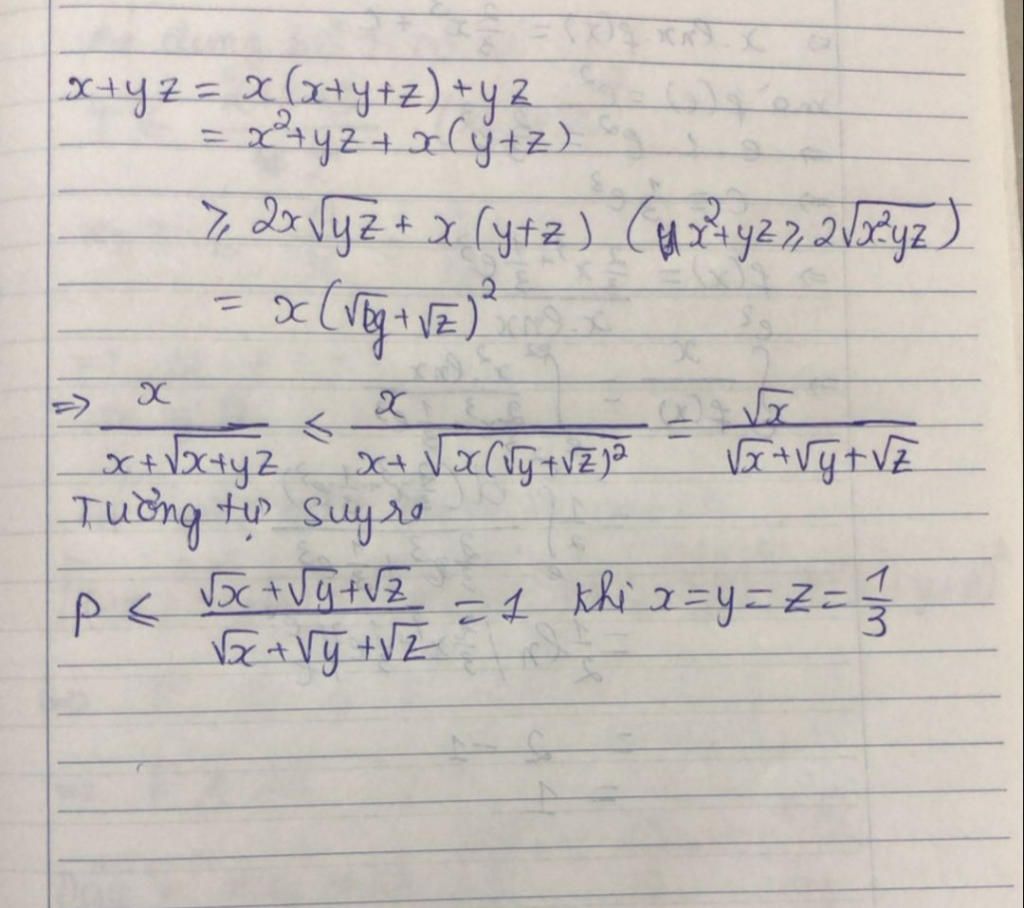 x+yz = x(x+y+z)+yz
= x²+yz+x(y+z)
≥ 2x√yz + x(y+z) (x²+yz ≥ 2√x²·yz)
= x(√y+√z)²
⇒ x/(x+√(x+yz)) ≤ x/(x+√(x(√y+√z)²)) = √x/(√x+√y+√z)
Tương tự suy ra
P ≤ (√x+√y+√z)/(√x+√y+√z) = 1 khi x=y=z=1/3